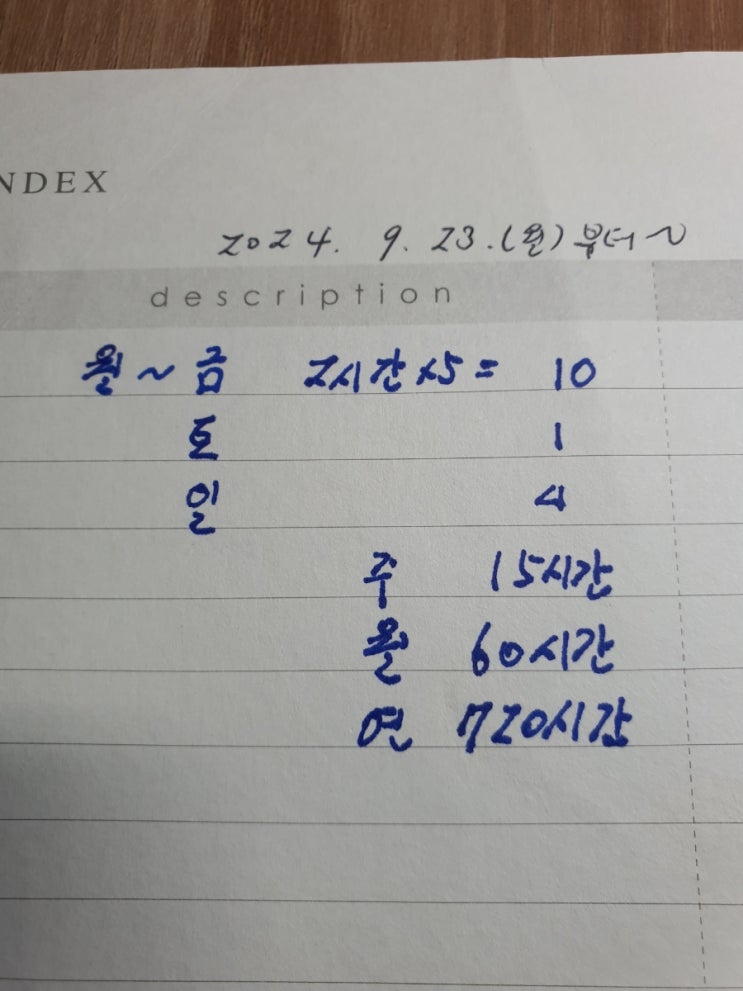 NDEX
2024. 9. 23.(월)부터~
description
월~금 2시간×5= 10
토 1
일 4
주 15시간
월 60시간
연 720시간